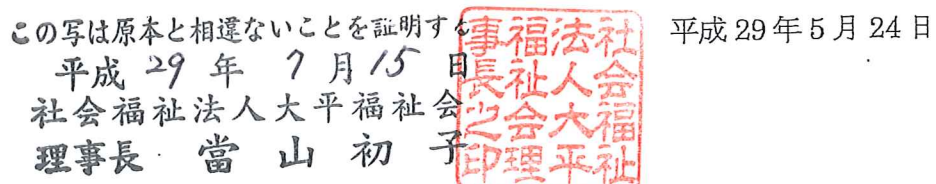 この写は原本と相違ないことを証明する
平成 29 年 7 月 15 日
社会福祉法人大平福祉会
理事長 當山初子
社会福祉
法人大平
福祉会理
事長之印
平成 29 年 5 月 24 日